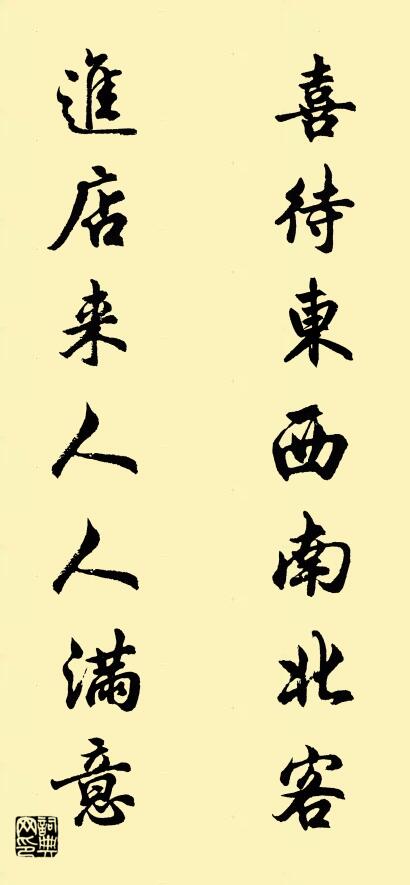 喜待東西南北客
進店来人人滿意
詞典網印